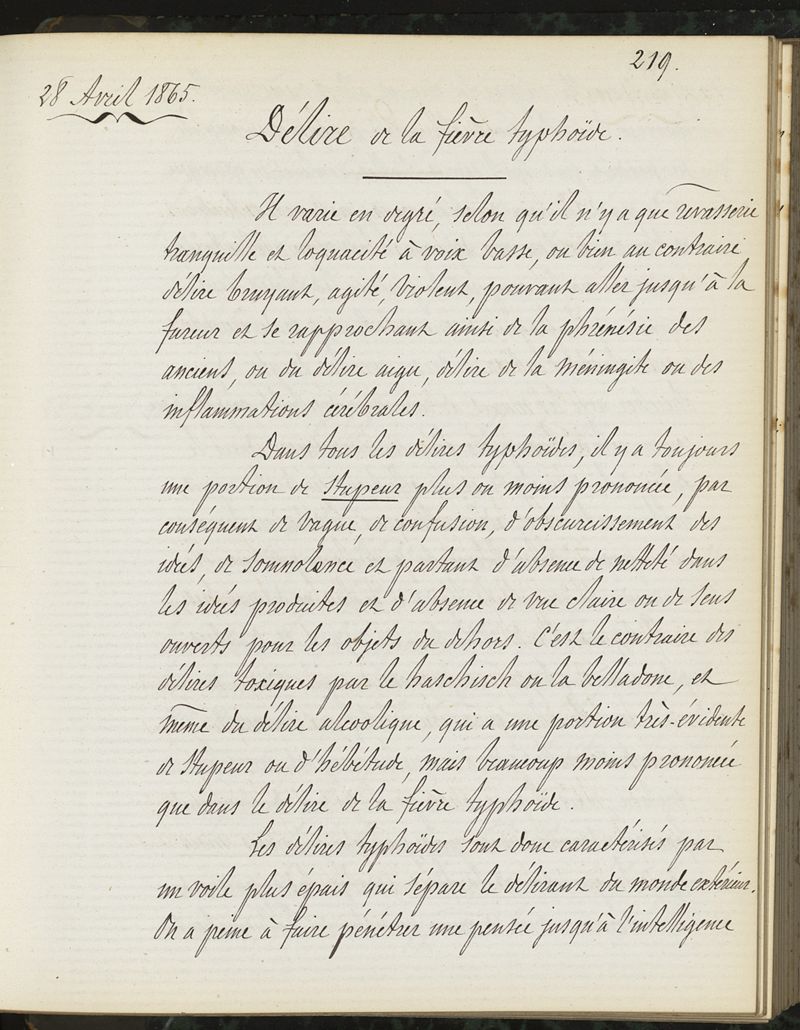 219.
28 Avril 1865.
Délire de la fièvre typhoïde.
Il varie en degré, selon qu'il n'y a que rêvasserie
tranquille et loquacité à voix basse, ou bien au contraire
délire bruyant, agité, violent, pouvant aller jusqu'à la
fureur et se rapprochant ainsi de la phrénésie des
anciens, ou du délire aigu, délire de la méningite ou des
inflammations cérébrales.
Dans tous les délires typhoïdes, il y a toujours
une portion de stupeur plus ou moins prononcée, par
conséquent de vague, de confusion, d'obscurcissement des
idées, de somnolence et partant d'absence de netteté dans
les idées produites et d'absence de vue claire ou de sens
ouverts pour les objets du dehors. C'est le contraire des
délires toxiques par le haschisch ou la belladone, et
même du délire alcoolique, qui a une portion très-évidente
de stupeur ou d'hébétude, mais beaucoup moins prononcée
que dans le délire de la fièvre typhoïde.
Les délires typhoïdes sont donc caractérisés par
un voile plus épais qui sépare le délirant du monde extérieur.
On a peine à faire pénétrer une pensée jusqu'à l'intelligence